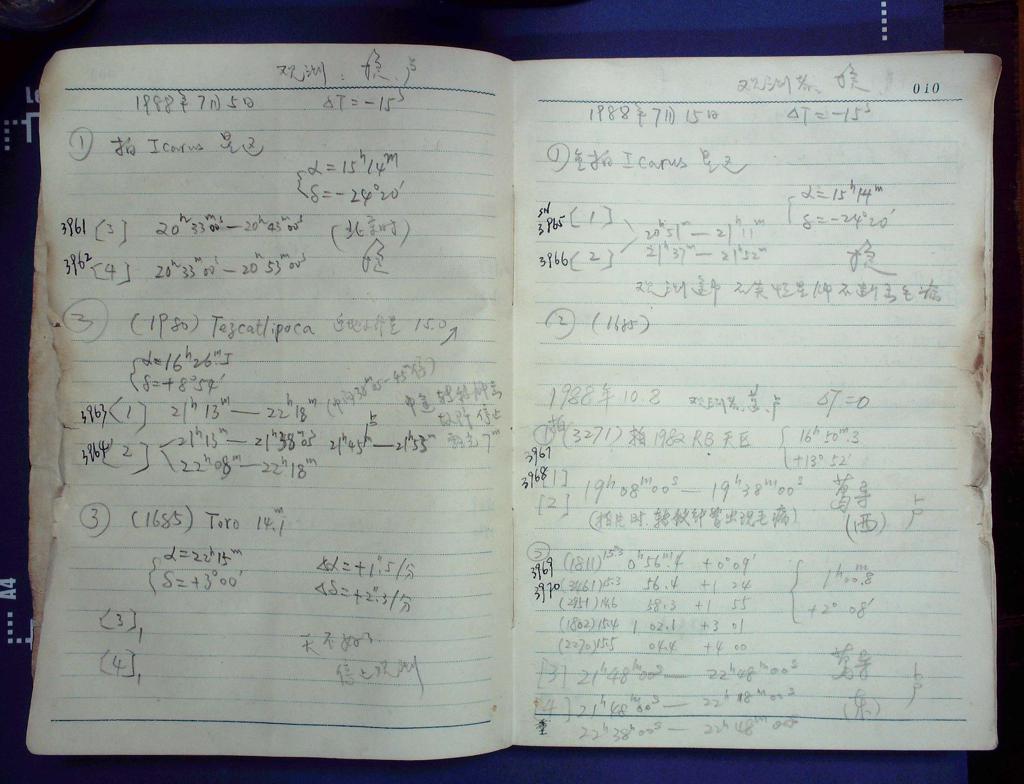 观测:
1988年7月5日 ΔT=-15ˢ
① 拍 Icarus 星区
α=15ʰ14ᵐ
δ=-24°20′
3961 [3] 20ʰ33ᵐ00ˢ—20ʰ43ᵐ00ˢ (北京时)
3962 [4] 20ʰ33ᵐ00ˢ—20ʰ53ᵐ00ˢ
② (1980) Tezcatlipoca 近地小行星 15.0
α=16ʰ26ᵐ.5
δ=+8°54′
3963 [1] 21ʰ13ᵐ—22ʰ18ᵐ
3964 [2] 21ʰ13ᵐ—21ʰ38ᵐ05ˢ 21ʰ45ᵐ—21ʰ55ᵐ
22ʰ08ᵐ—22ʰ18ᵐ
③ (1685) Toro 14.ᵐ1
α=22ʰ15ᵐ
δ=+3°00′
Δα=+1ˢ.5/分
Δδ=+2″.3/分
[3]
[4]
天不好了
停止观测
010
观测者
1988年7月15日 ΔT=-15ˢ
① 重拍 Icarus 星区
α=15ʰ14ᵐ
δ=-24°20′
3965 [1] 20ʰ51ᵐ—21ʰ11ᵐ
3966 [2] 21ʰ37ᵐ—21ʰ52ᵐ
② (1685)
1988年10.8 观测者 ΔT=0
① (3271) 拍1982 RB天区
16ʰ50ᵐ.3
+13°52′
3967
3968 [1]
[2] 19ʰ08ᵐ00ˢ—19ʰ38ᵐ00ˢ 葛导
(拍片时 转仪钟曾出现毛病) (西)
②
3969 (1811) 15.3 0ʰ56ᵐ.4 +0°09′
3970 (3461) 15.3 56.4 +1 24
(2951) 14.6 58.3 +1 55
(1802) 15.4 1 02.1 +3 01
(2270) 15.5 04.4 +4 00
1ʰ00ᵐ.8
+2° 08′
[3] 21ʰ48ᵐ00ˢ—22ʰ48ᵐ00ˢ 葛导
[4] 21ʰ48ᵐ00ˢ—22ʰ18ᵐ00ˢ (东)
22ʰ38ᵐ00ˢ—22ʰ48ᵐ00ˢ
A4